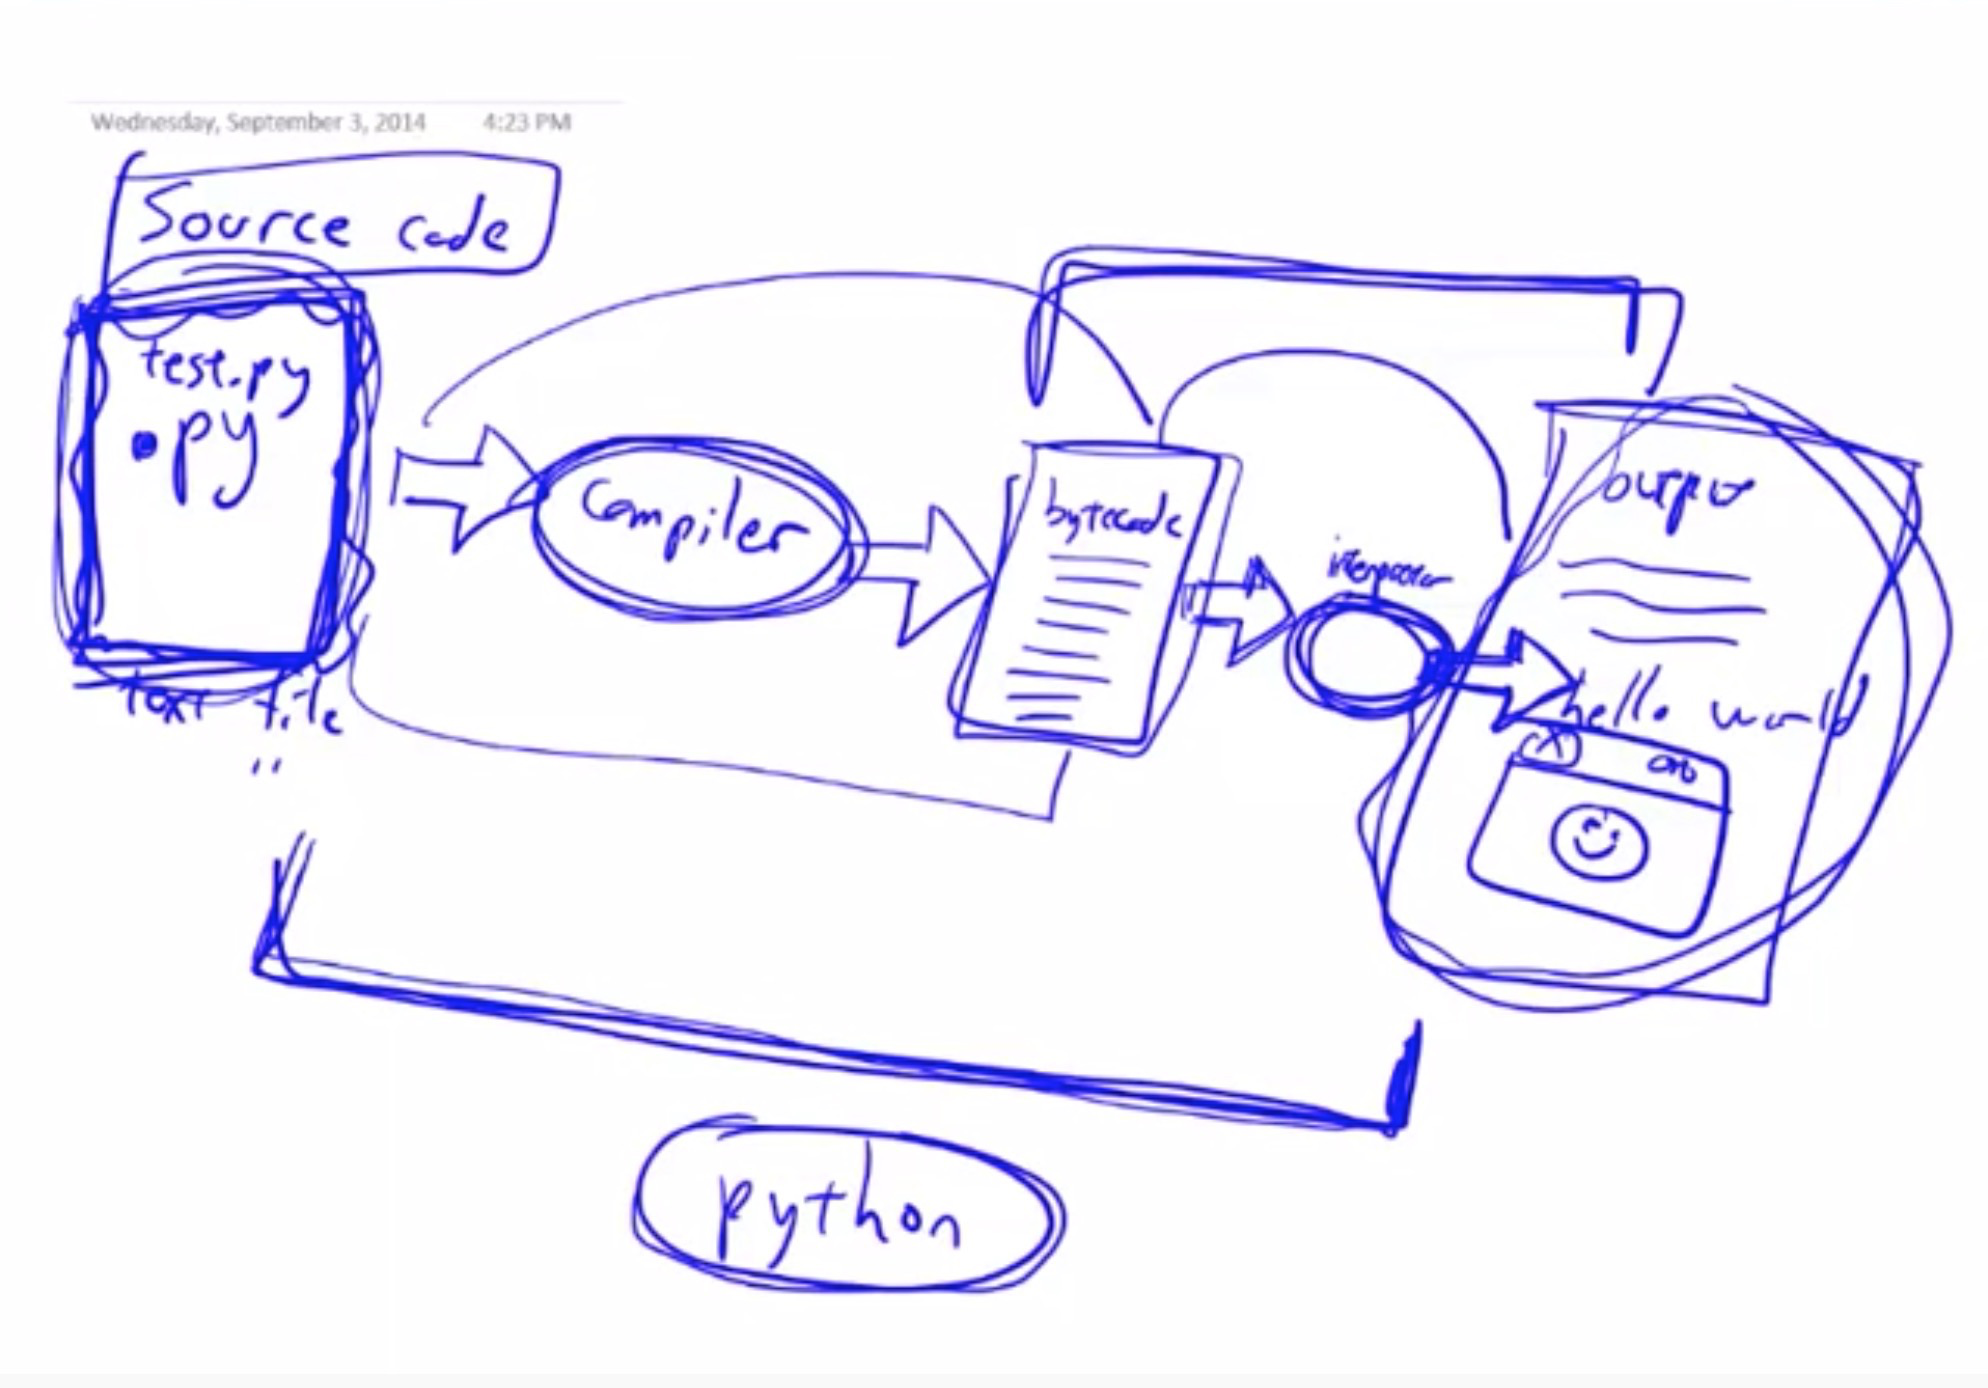 Wednesday, September 3, 2014 4:23 PM
Source code
test.py
.py
text file
compiler
bytecode
interpreter
output
hello world
python